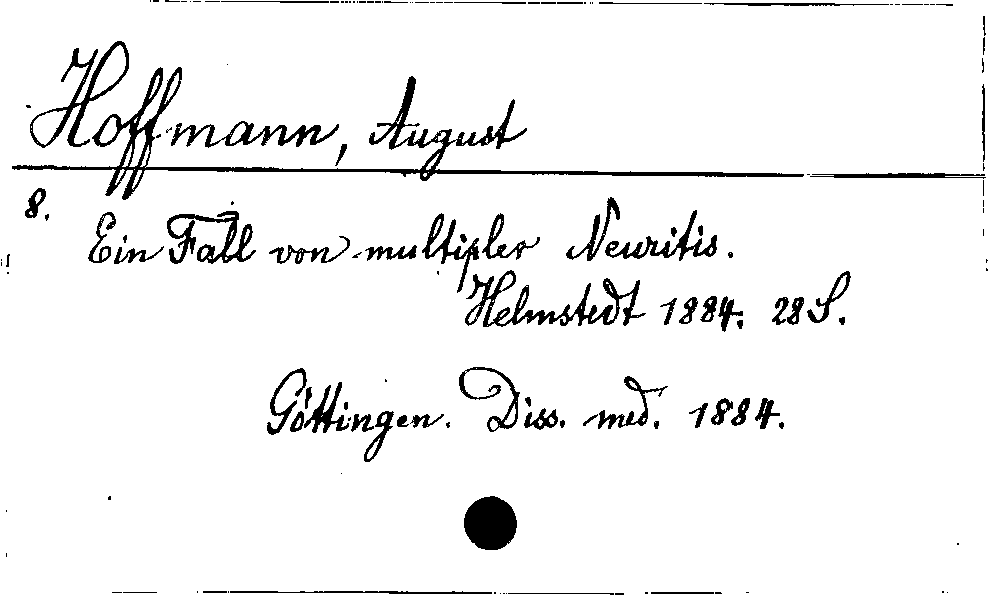 Hoffmann, August
8.
Ein Fall von multipler Neuritis.
Helmstedt 1884. 28 S.
Göttingen. Diss. med. 1884.